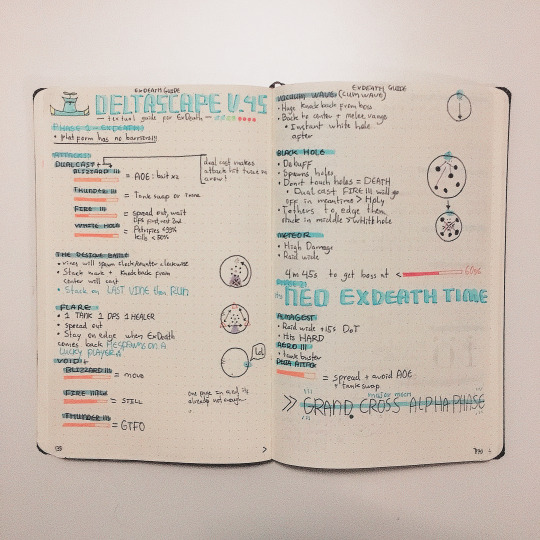 EXDEATH GUIDE
DELTASCAPE V.4S
textual guide for ExDeath
PHASE 1 - EXDEATH
• platform has no barriers!!!
ATTACKS
DUALCAST
dual cast makes
attack hit twice
BLIZZARD III = AOE: bait x2
THUNDER III = Tank swap or invuln
FIRE III = spread out, wait
DPS first
WHITE HOLE = Petrifies <99%
kills < 80%
THE DECISIVE BATTLE
• vines will spawn clock/counter clockwise
• Stack mark + knockback from
center will cast
• Stack on LAST VINE then RUN
FLARE
• 1 TANK 1 DPS 1 HEALER
• spread out
• Stay on edge when ExDeath
comes back
LUCKY PLAYER
lol
VOID
BLIZZARD III = move
FIRE III = STILL
THUNDER III = GTFO
one page in and it's
already not enough
EXDEATH GUIDE
VACUUM WAVE (CUM WAVE)
• Huge knockback from boss
• Back to center + melee range
• Instant white hole
after
BLACK HOLE
• Debuff
• Spawns holes
• Don't touch holes = DEATH
• Dual cast FIRE III will go
off in meantime > Holy
• Tethers to edge then
stack in middle > white hole
METEOR
• High Damage
• Raid wide
4m 45s to get boss at < 60%
NEO EXDEATH TIME
ALMAGEST
• Raid wide +15s DoT
• Hits HARD
AERO III
• tank buster
DELTA ATTACK
= spread + avoid AOE
+ tankswap
major mech
>> GRAND CROSS ALPHA PHASE